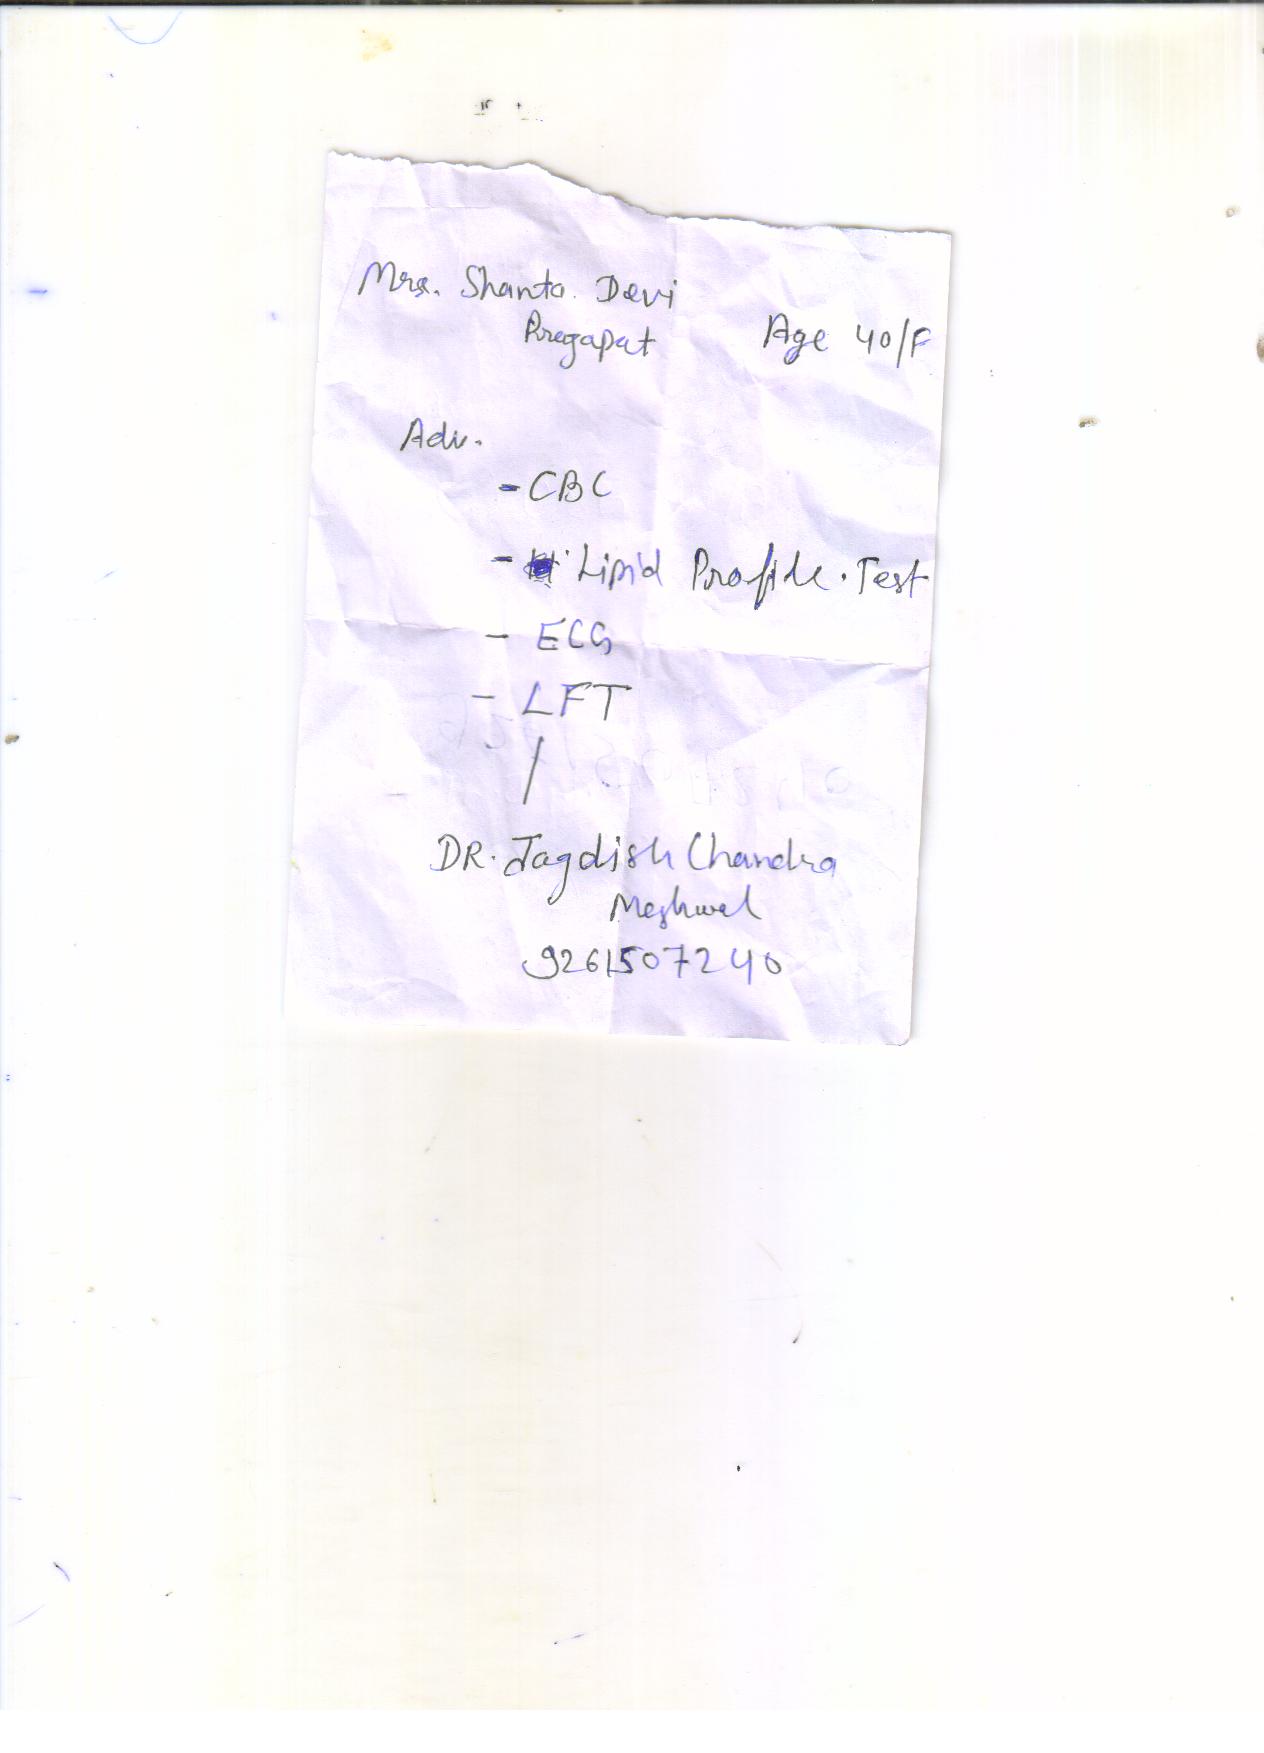 Mrs. Shanta Devi
Pregapat Age 40/F
Adv.
- CBC
- Lipid Profile. Test
- ECG
- LFT
DR. Jagdish Chandra
Meghwal
9261507240